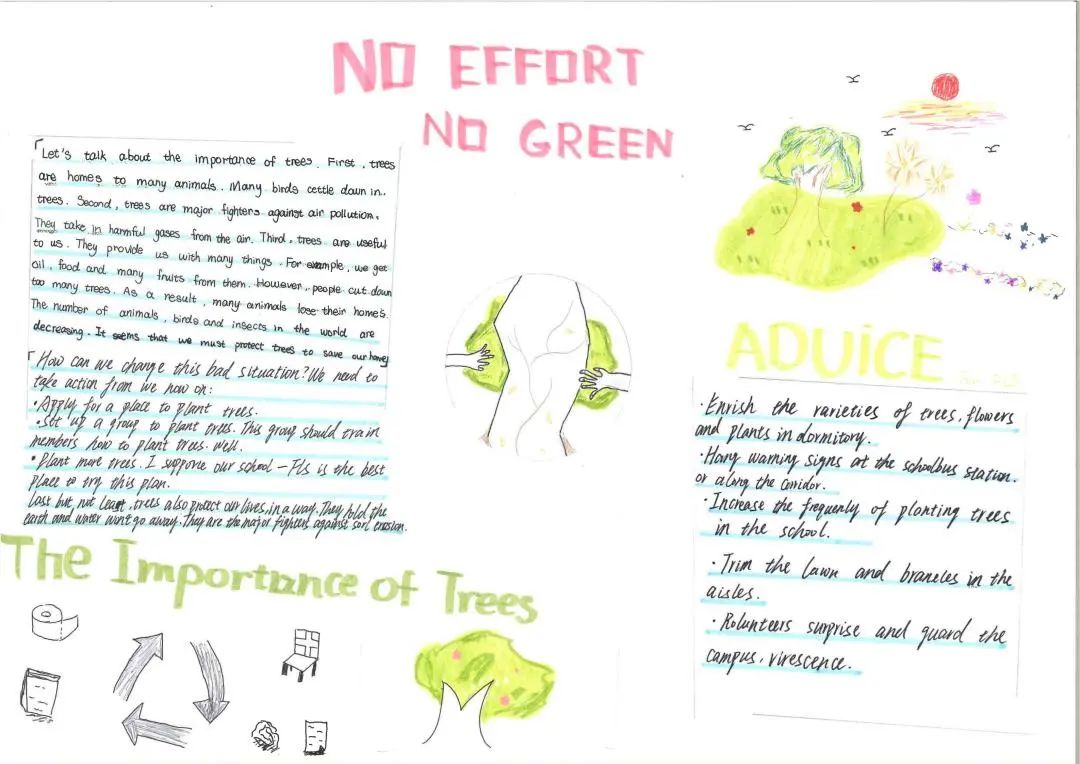 NO EFFORT
NO GREEN
Let's talk about the importance of trees. First, trees
are homes to many animals. Many birds cettle down in.
trees. Second, trees are major fighters against air pollution.
They take in harmful gases from the air. Third, trees are useful
to us. They provide us with many things. For example, we get
oil, food and many fruits from them. However, people cut down
too many trees. As a result, many animals lose their homes.
The number of animals, birds and insects in the world are
decreasing. It seems that we must protect trees to save our
How can we change this bad situation? We need to
take action from we now on:
·Apply for a place to plant trees.
·Set up a group to plant trees. This group should train
members how to plant trees. well.
·Plant more trees. I suppose our school - FLS is the best
place to try this plan.
Last but not least, trees also protect our lives, in a way. They hold the
earth and water won't go away. They are the major fighters against soil erosion.
The Importance of Trees
ADUiCE
·Enrish the rarieties of trees, flowers
and plants in dormitory.
·Hang warning signs at the schoolbus station.
or along the corridor.
·Increase the frequenly of planting trees
in the school.
·Trim the lawn and brancles in the
aisles.
·Rolunteers surprise and guard the
campus, virescence.